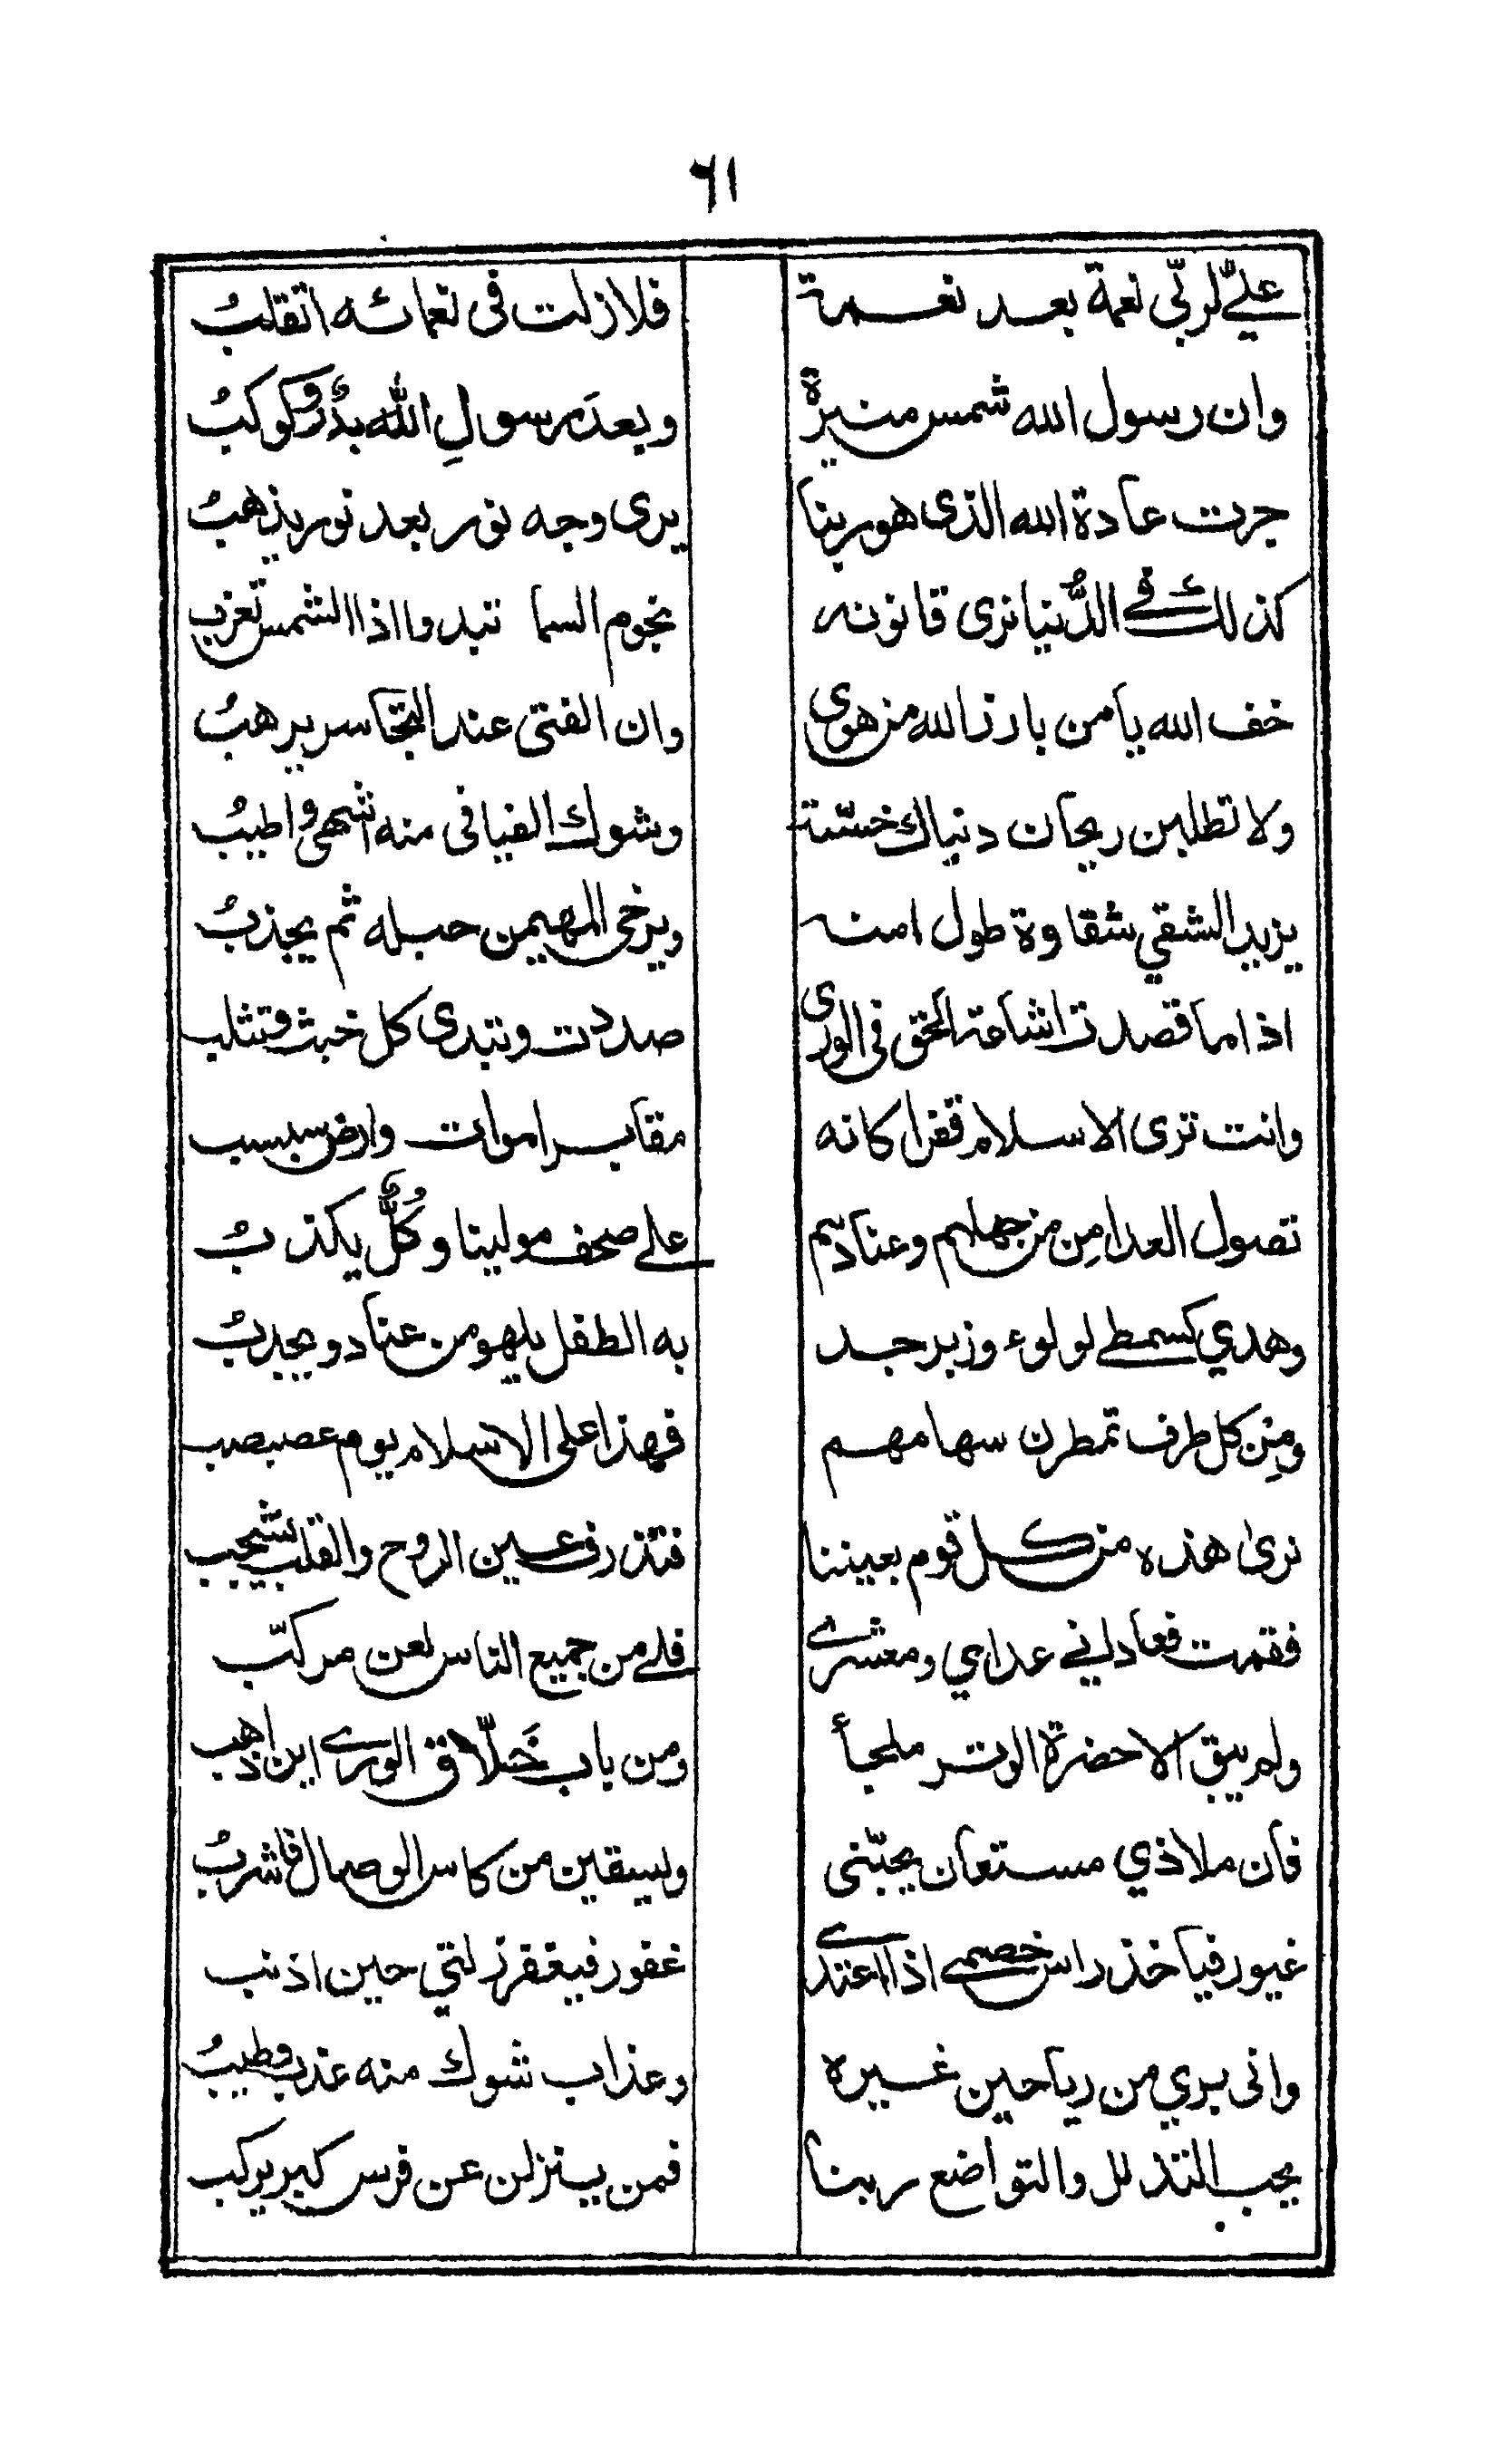 ۶۱
عليّ لربّي نعمة بعد نعمة فلا زلت في نعمائه اتقلبُ
وان رسول الله شمس منيرة وبعد رسولِ الله بدرٌ وكوكبُ
جرت عادة الله الذى هو ربنا يرى وجه نور بعد نور يذهبُ
كذلك في الدُّنيا نرى قانونه نجوم السما تبدو اذا الشمس تغرب
خف الله يا من بارز الله من هوى وان الفتى عند التجاسر يرهبُ
ولا تطلبن ريحان دنياك خسّة وشوك الفيافى منه اشهى واطيبُ
يزيد الشقي شقاوة طول امنه ويرخى المهيمن حبله ثم يجذبُ
اذا ما قصدت اشاعة الحق فى الورى صددت وتبدى كل خبث وتثلب
وانت ترى الاسلام قفرا كانه مقابر اموات وارض سبسب
تصول العدا مِن من جهلهم وعنادهم على صحف مولينا وكُلٌّ يكذبُ
وهدي كسمطي لولوء وزبرجد به الطفل يلهو من عناد ويجدبُ
ومِن كل طرف تمطرن سهامهم فهذا على الاسلام يوم عصبصب
نرى هذه من كل قوم بعيننا فتذرف عين الروح والقلب يشجب
فقمت فعاداني عداي ومعشرى فلى من جميع الناس لعن مركّب
ولم يبق الا حضرة الوتر ملجأ ومن باب خَلّاق الورى اين اذهب
فان ملاذي مستعان يحبّنى وليسقين من كاس الوصال فاشربُ
غيور فياخذ راس خصمى اذا اعتدى غفور فيغفر زلتي حين اذنب
وانى بري من رياحين غيره وعذاب شوك منه عذب وطيبُ
يحب التذلل والتواضع ربنا فمن ينزلن عن فرس كبر يركب